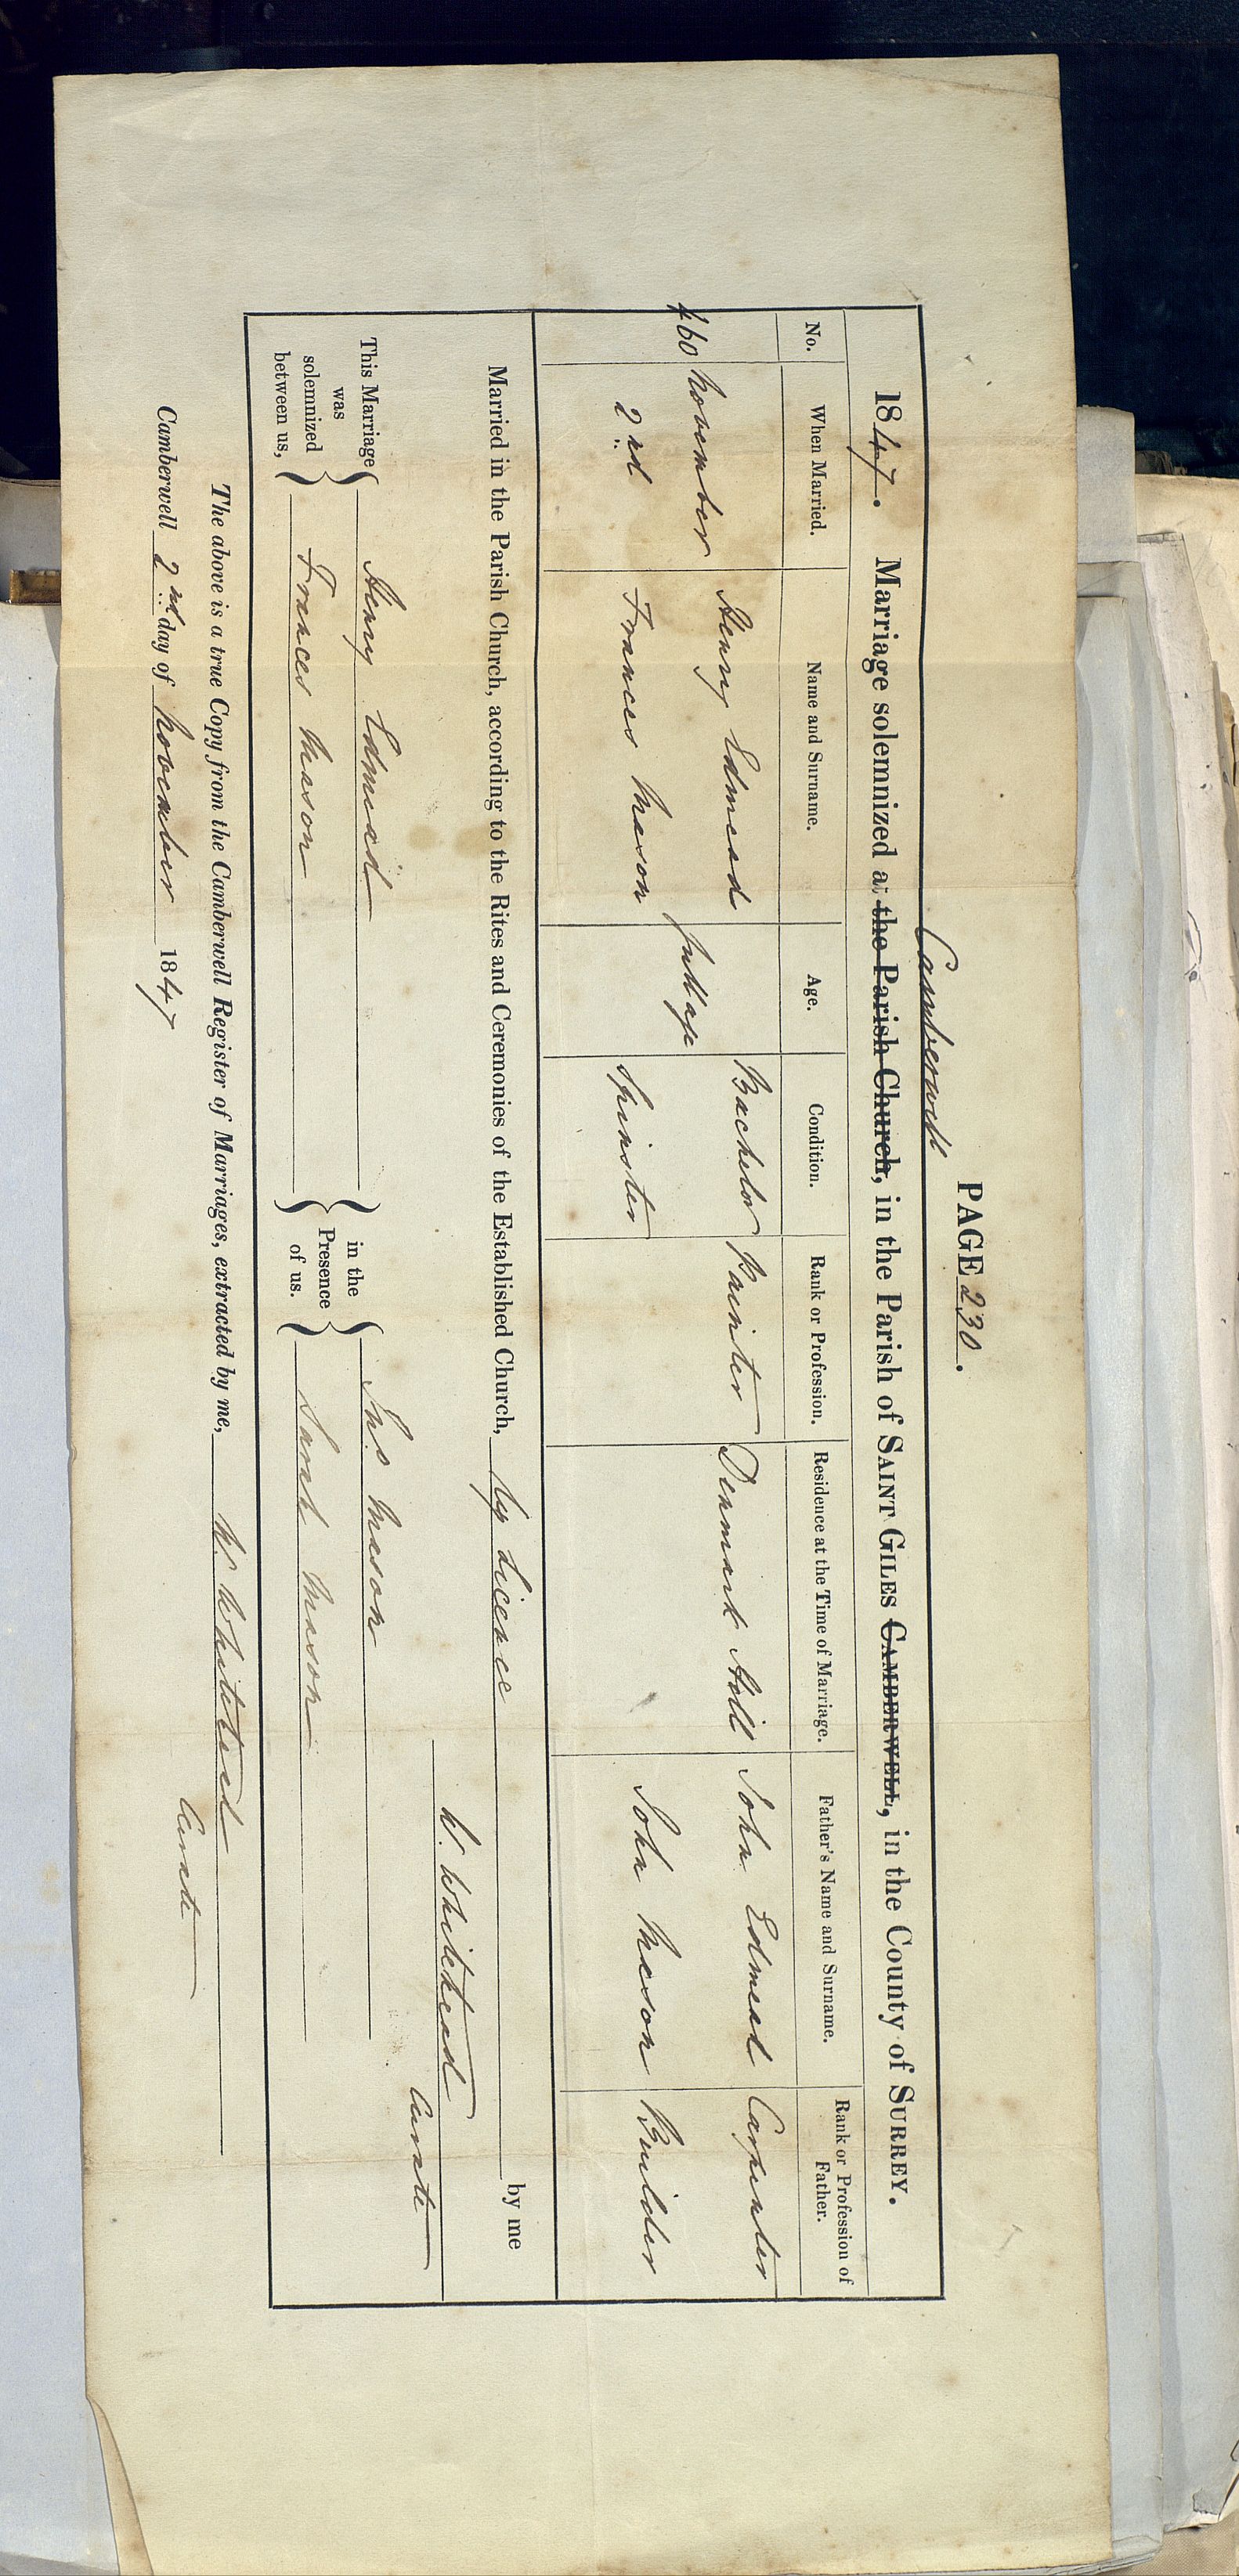 PAGE 230.
Camberwell
1847. Marriage solemnized at the Parish Church, in the Parish of SAINT GILES CAMBERWELL, in the County of SURREY.
No. When Married. Name and Surname. Age. Condition. Rank or Profession. Residence at the Time of Marriage. Father's Name and Surname. Rank or Profession of Father.
Henry Edmead Bachelor Painter Denmark Hill John Edmead Carpenter
460 November Full age
2nd Frances Mason Spinster John Mason Builder
Married in the Parish Church, according to the Rites and Ceremonies of the Established Church, by Licence by me
W. Whitehead
Curate
This Marriage was solemnized between us, Henry Edmead in the Presence of us. Jno Mason
Frances Mason Sarah Mason
The above is a true Copy from the Camberwell Register of Marriages, extracted by me, W. Whitehead
Curate
Camberwell 2nd day of November 1847